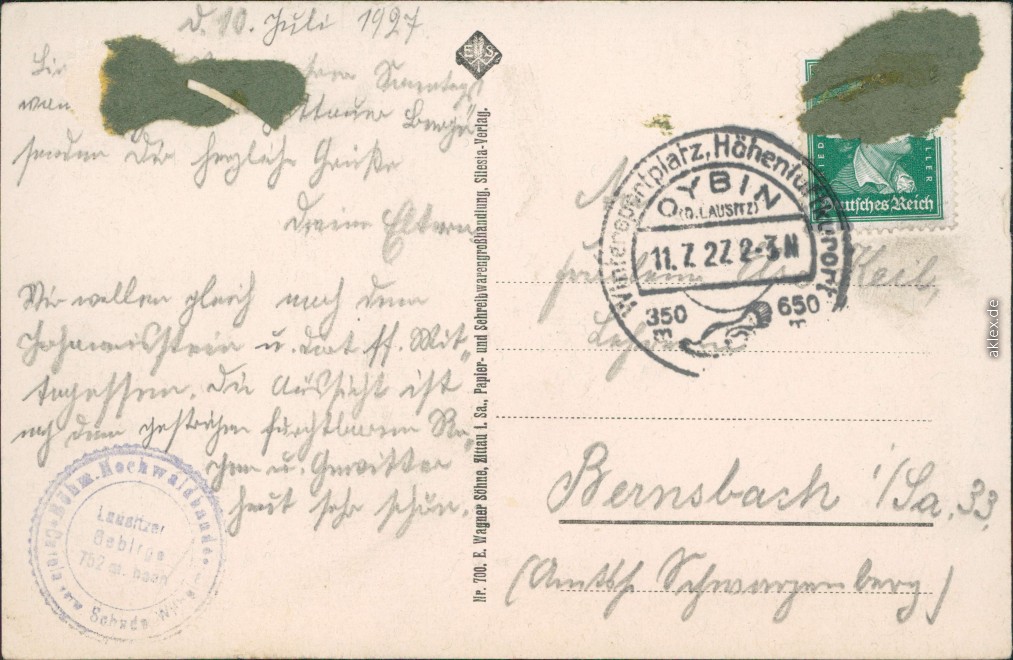 d. 10. Juli 1927
Sonntags
Zittauer Berge
senden Dir herzliche Grüße
Deine Eltern
Wir wollen gleich nach dem
Johannisstein u. dort ff. Mit-
tagessen. Die Aussicht ist
nach dem gestrichen furchtbaren Re-
gen u. Gewitter
heut sehr schön.
Böhm. Hochwaldbaude
Lausitzer
Gebirge
752 m. hoch
E S
Nr. 700. E. Wagner Söhne, Zittau i. Sa., Papier- und Schreibwarengroßhandlung, Silesia-Verlag.
Wintersportplatz, Höhenluftkurort
OYBIN
(O. LAUSITZ)
11.7.27.2-3 N
350 m
650 m
Deutsches Reich
Keil,
Bernsbach i/Sa. 33,
(Amtsh. Schwarzenberg)
aklex.de